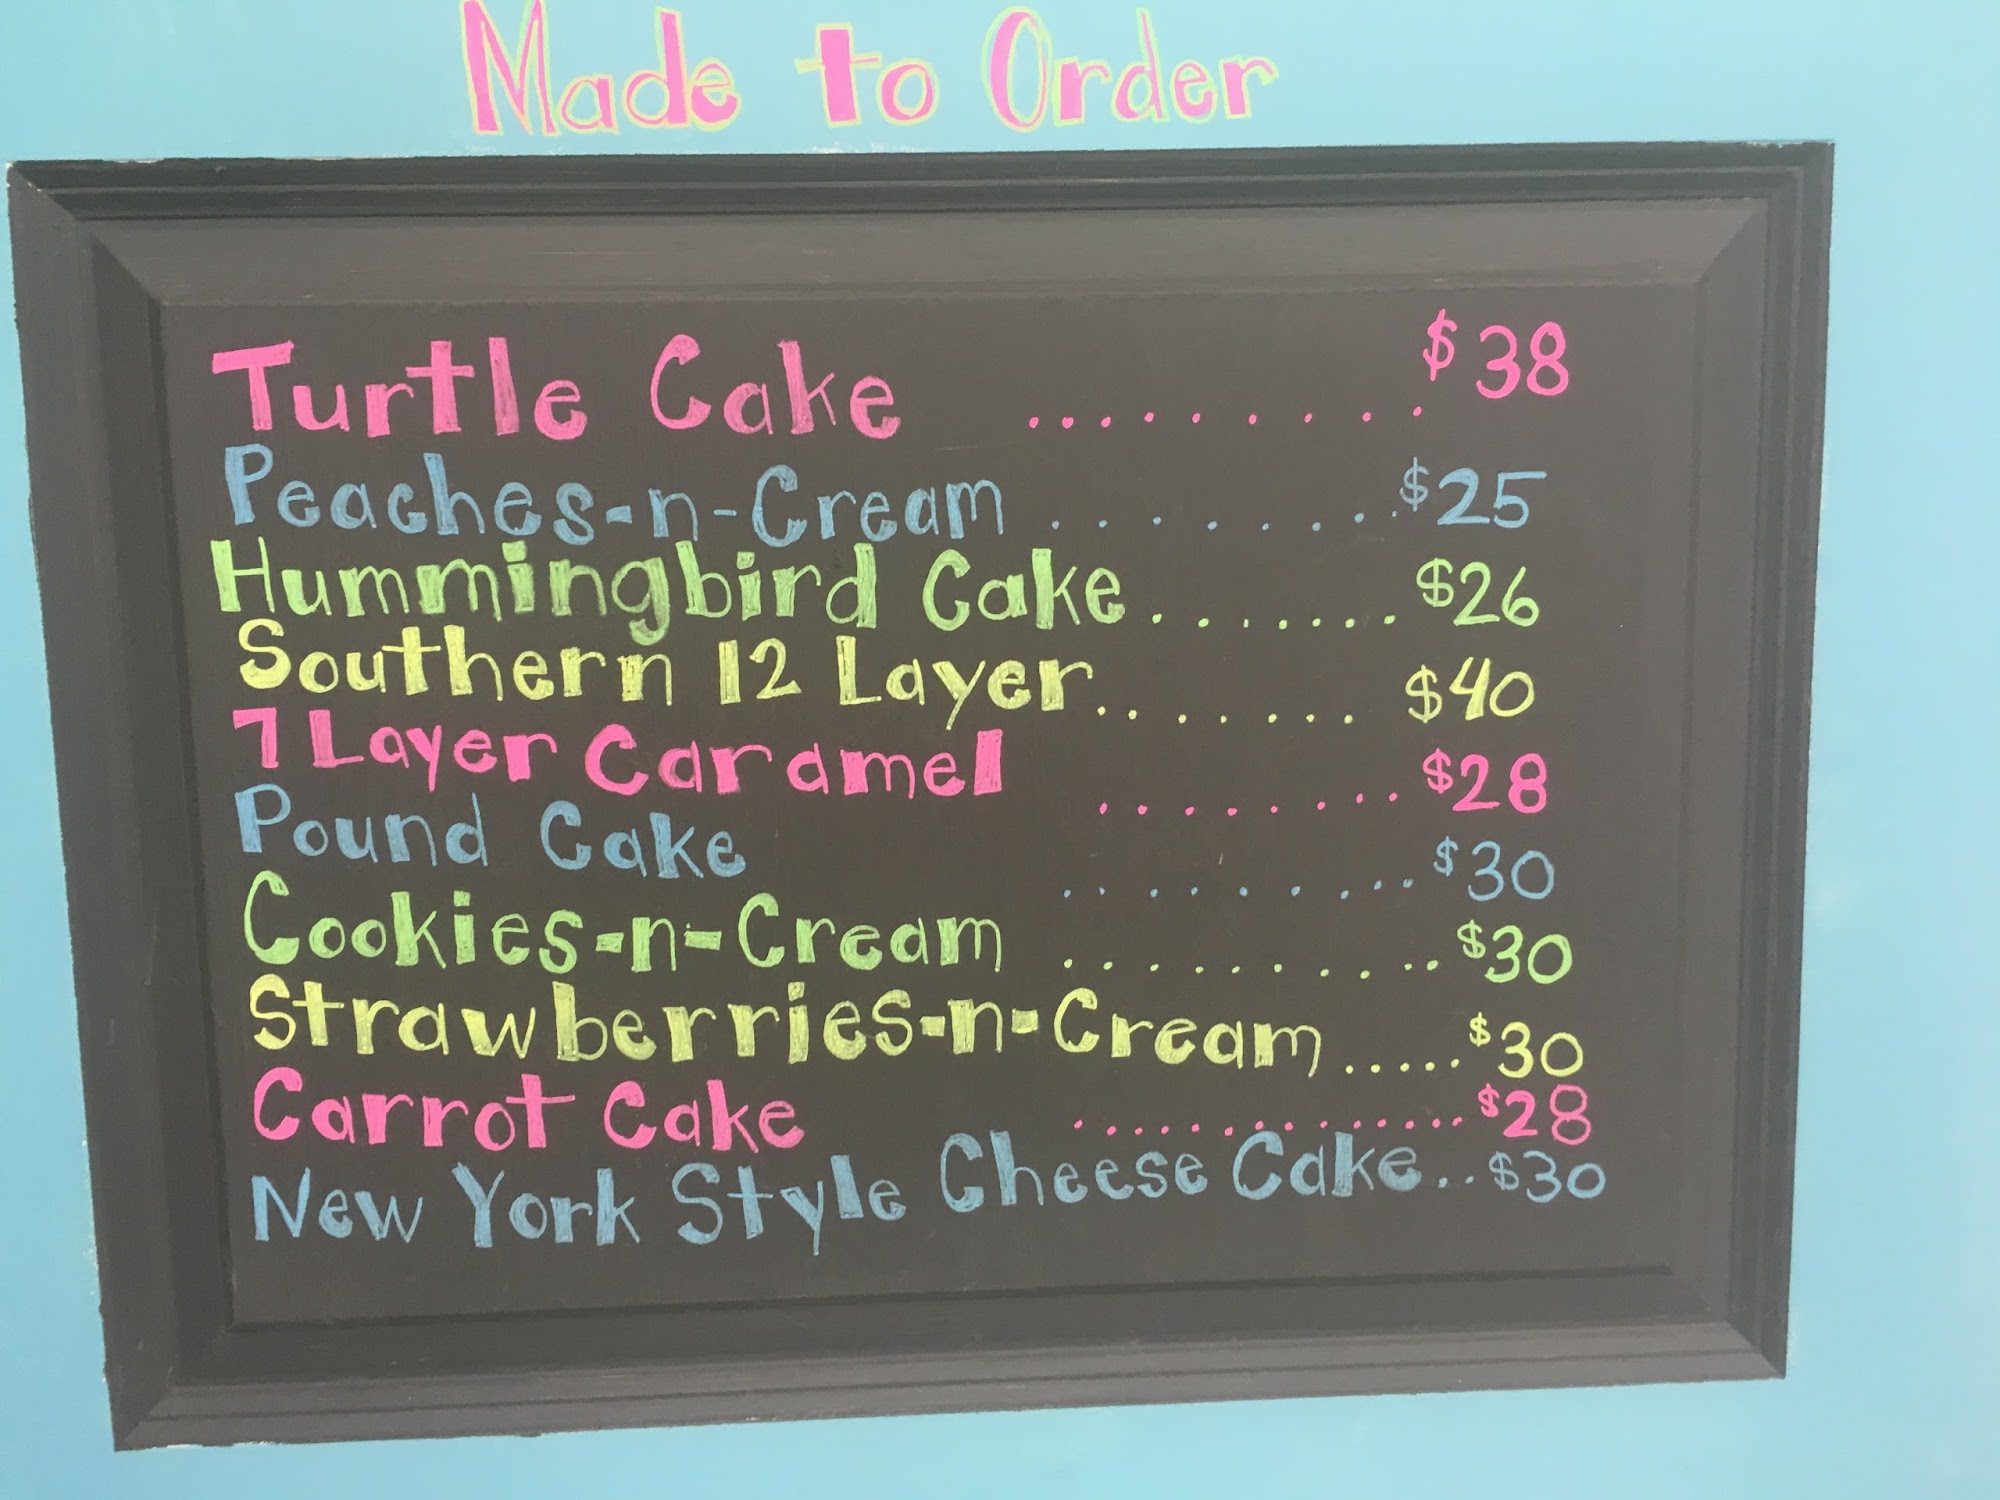 Made to Order
Turtle Cake .......... $38
Peaches-n-Cream ......... $25
Hummingbird Cake ....... $26
Southern 12 Layer ....... $40
7 Layer Caramel ........ $28
Pound Cake ......... $30
Cookies-n-Cream .......... $30
Strawberries-n-Cream ..... $30
Carrot Cake .............. $28
New York Style Cheese Cake .. $30